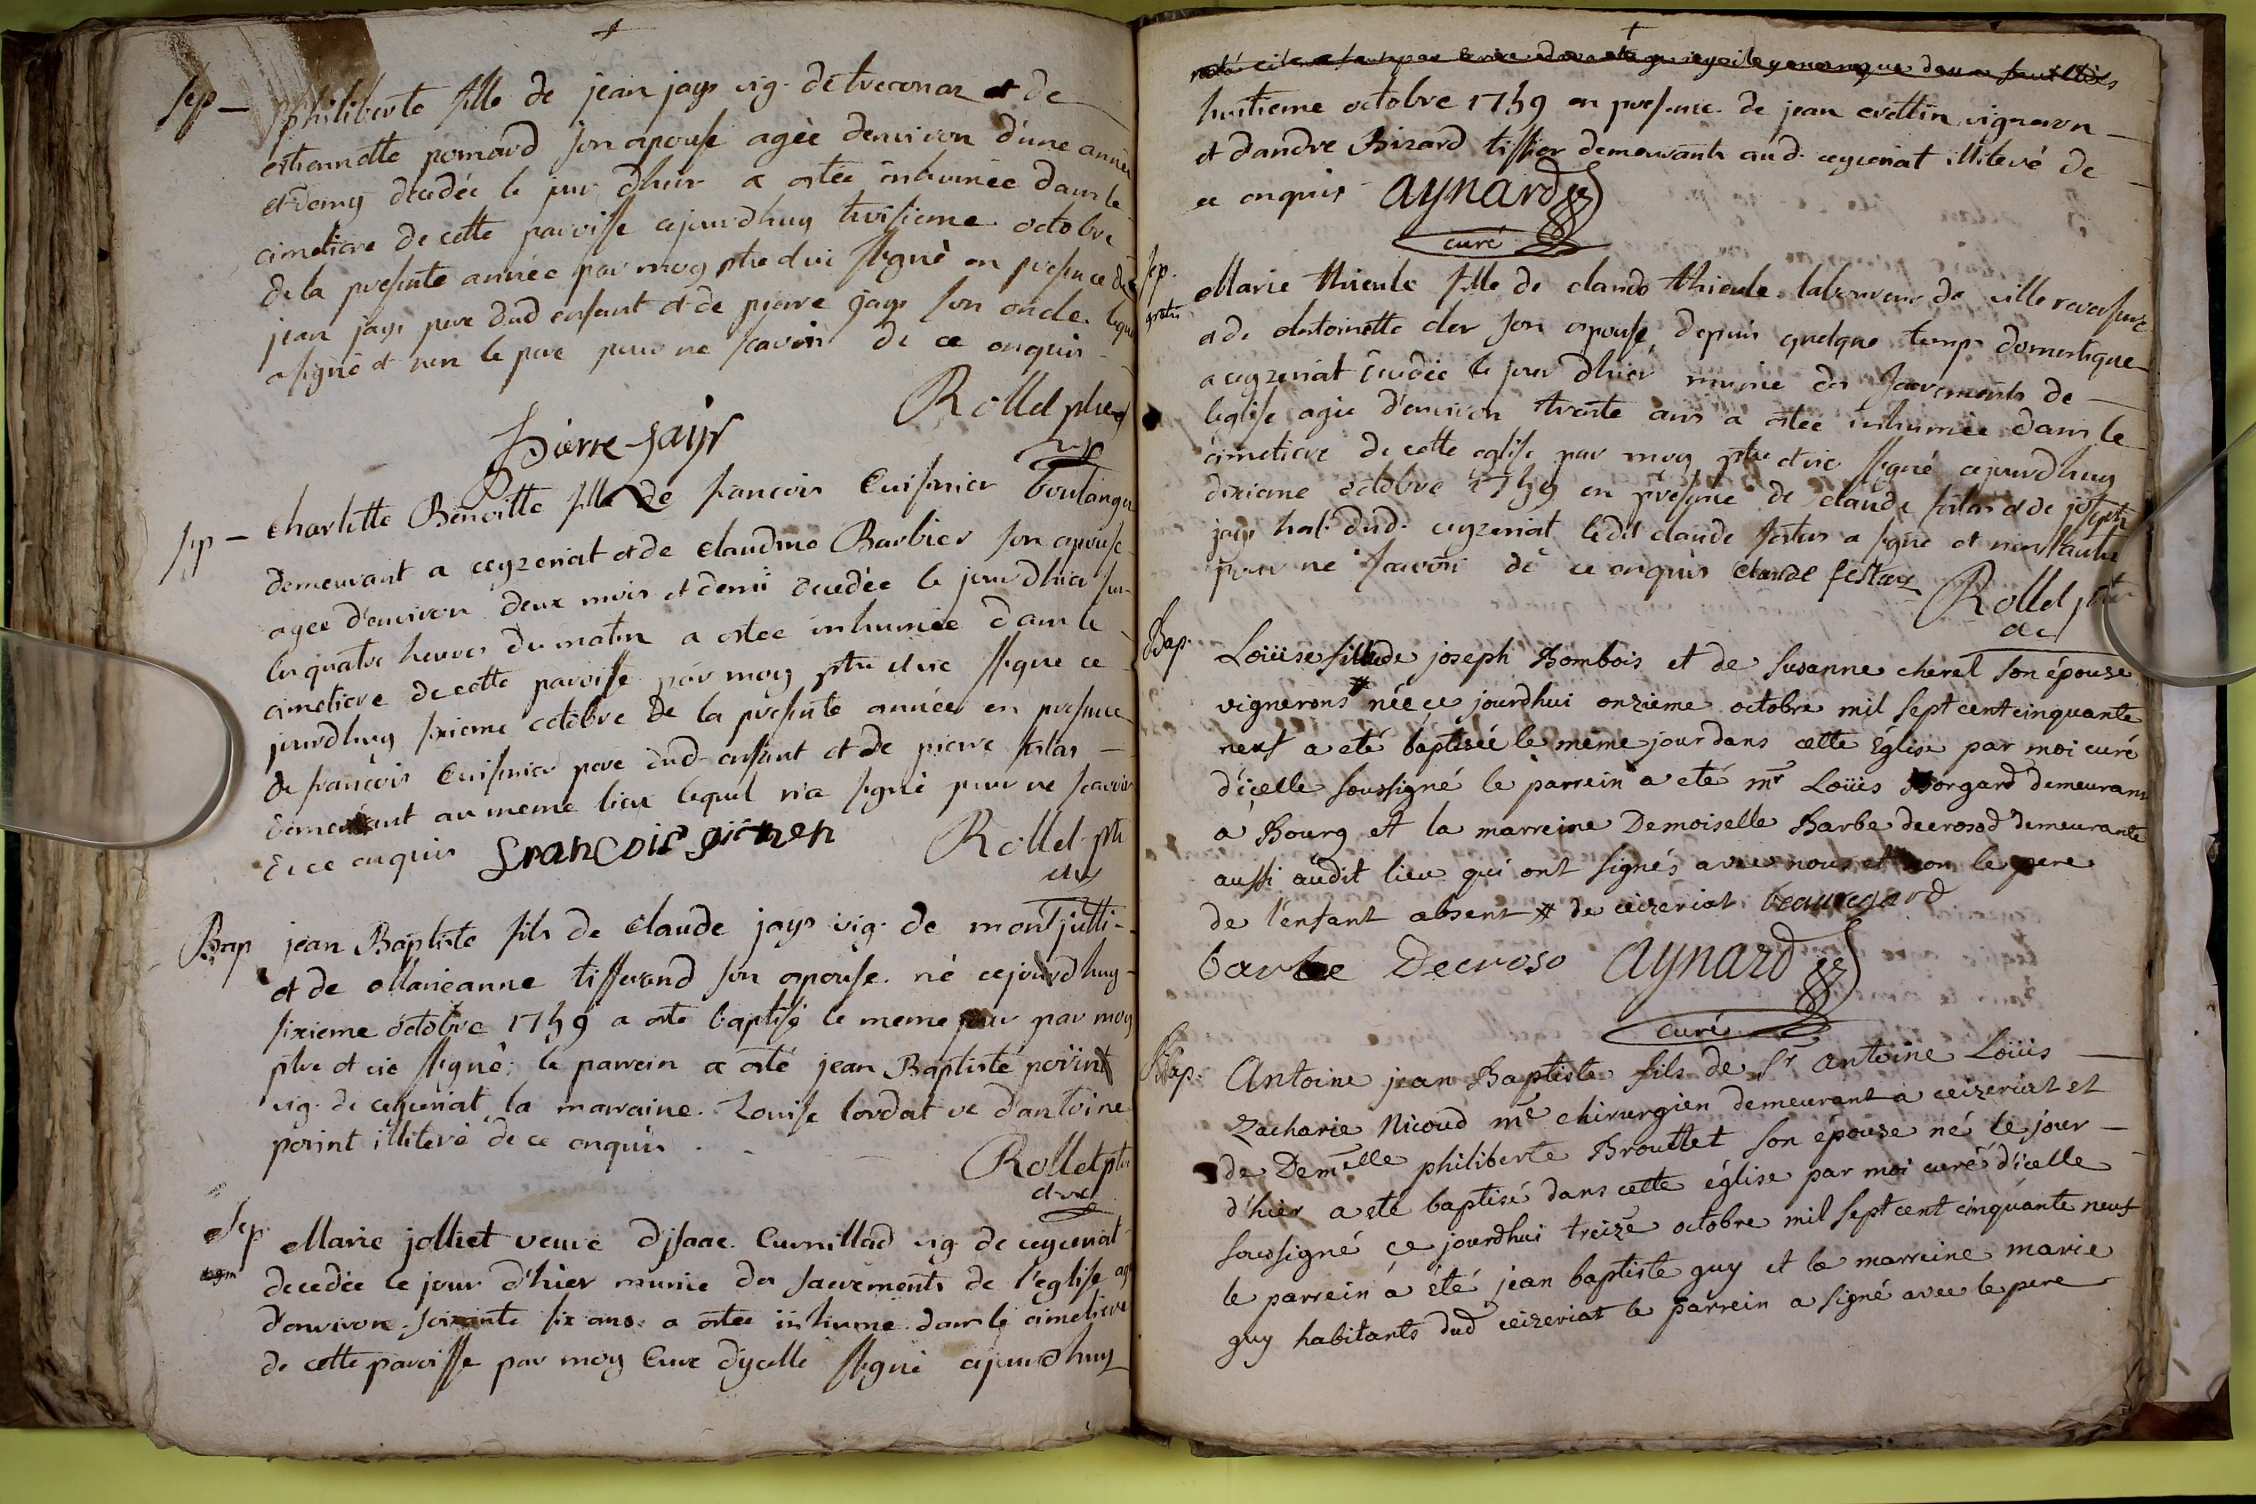 Sep – philiberte fille de jean jays vig. de treconnaz et de
estiennette pomard son epouse agée denviron d'une année
et demy decedée le jour d'hier a estée inhumée dans le
cimetiere de cette paroisse cejourdhuy troisieme octobre
de la presente année par moy ptre et vic ssigné en presence de
jean jays pere dud enfant et de pierre jays son oncle lequel
a signé et non le pere pour ne scavoir de ce enquis
Rollet ptre et
vic
Pierre Jays
Sep – charlotte Benoitte fille de francois Cuisinier boulanger
demeurant a ceyzeriat et de claudine Barbier son epouse
agée d'environ deux mois et demi decedée le jour d'hier sur
les quatre heures du matin a estée inhumée dans le
cimetiere de cette paroisse par moy ptre et vic ssigné ce
jourdhuy sixieme octobre de la presente année en presence
de françois Cuisinier pere dud enfant et de pierre
demeurant au meme lieu lequel n'a signé pour ne scavoir
de ce enquis francois
Rollet ptre
et vic
Bap jean Baptiste fils de claude jays vig. de montjulli
et de Marieanne tisserand son epouse né cejourdhuy
sixieme octobre 1759 a esté baptisé le meme jour par moy
ptre et vic ssigné; le parrein a esté jean Baptiste perint
vig. de ceyzeriat la marraine Louise lordat ve d'antoine
perint illiteré de ce enquis
Rollet ptre
et vic
Sep Marie jolliet veuve d'jsaac Curnillad vig. de ceyzeriat
decedée le jour d'hier munie des sacrements de l'eglise agée
d'environ soixante six ans a estée inhumé dans le cimetiere
de cette paroisse par moy Curé d'ycelle ssigné cejourdhuy
huitieme octobre 1759 en presence de jean crettin vigneron
et dandré Bizard tissier demeurants aud. ceyzeriat illiteré de
ce enquis Aynard
curé
Sep.
gratis
Marie thieule fille de claude thieule laboureur de ville reversure
et de Antoinette der son epouse, depuis quelque temps domestique
a ceyzeriat decedée le jour d'hier munie des sacrements de
leglise agée d'environ trente ans a estée inhumée dans le
cimetiere de cette eglise par moy ptre et vic ssigné cejourdhuy
dixieme octobre 1759 en presence de claude festas et de joseph
jays hab. dud. ceyzeriat ledit claude festas a signé et non l'autre
pour ne scavoir de ce enquis claude festaz
Rollet ptre
et vic
Bap. Loüise fille de joseph Bombois et de Susanne cheret son épouse
vignerons # née ce jourdhui onzieme octobre mil sept cent cinquante
neuf a eté baptisée le même jour dans cette Église par moi curé
d'icelle soussigné le parrein a eté mr Loüis Borgard demeurant
à Bourg et la marreine Demoiselle Barbe decrosod demeurante
aussi audit lieu qui ont signés avec nous et non le pere
de l'enfant absent # de ceizeriat beauregard
barbe Decroso Aynard
curé
Bap. Antoine jean Baptiste fils de Sr antoine Loüis
Zacharie Nicoud me chirurgien demeurant a ceizeriat et
de Demelle philiberte Brouttet son épouse né le jour
d'hier a eté baptisé dans cette église par moi curé d'icelle
soussigné ce jourdhui treize octobre mil sept cent cinquante neuf
le parrein a été jean baptiste guy et la marreine marie
guy habitants dud ceizeriat le parrein a signé avec le pere